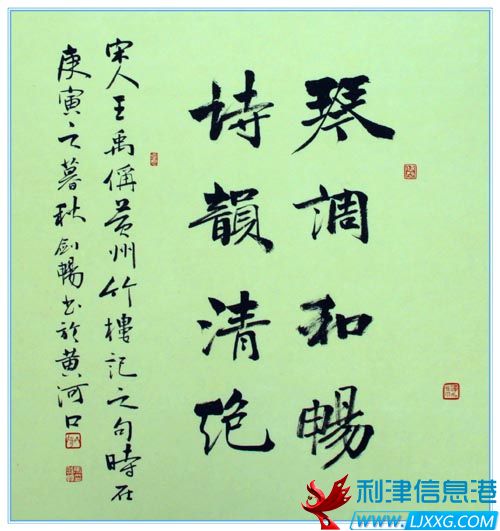 琴调和暢
诗韻清绝
宋人王禹偁黄州竹樓记之句時在
庚寅之暮秋剑暢书於黄河口
利津信息港
WWW.LJXXG.COM